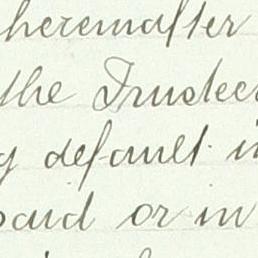 hereinafter
the Trustees
default in
paid or in